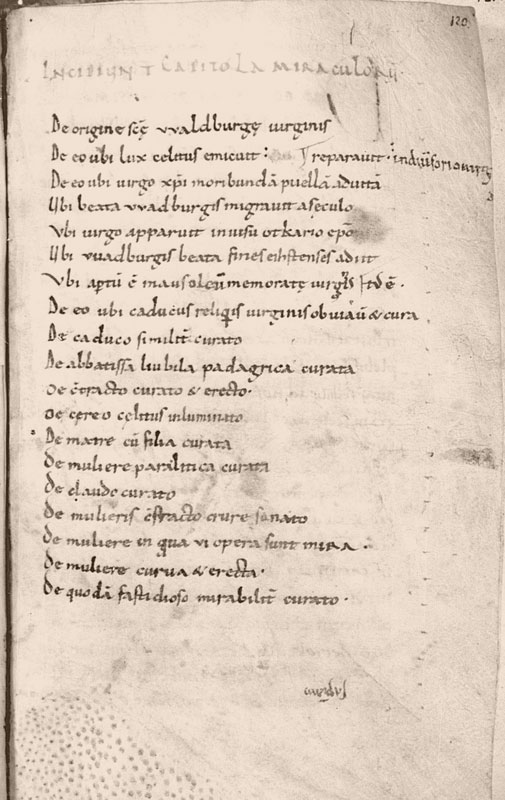 120
INCIPIUNT CAPITOLA MIRACULORŪ
De origine scę vvaldburgę uirginis
De eo ubi lux celitus emicuit : reparauit
De eo ubi virgo xp̄i moribundā puellā adiuuā
Ubi beata vvadburgis migrauit a seculo
Vbi virgo apparuit in uisu otkario epō
Ubi vuadburgis beata fines eihstenses adiit
Vbi aptū ē mausoleū memoratę uirgīs
De eo ubi caducus reliqis uirginis obuiāū & cura
De caduco similit̄ curato
De abbatissa liubila padagrica curata
De c̄tracto curato & erecto.
De cereo celitus inluminato
De matre cū filia curata
De muliere paralitica curata
De claudo curato
De mulieris c̄fracto crure sanato
De muliere in qua vi opera sunt mira.
De muliere curua & erecta.
De quodā fastidioso mirabilit̄ curato.